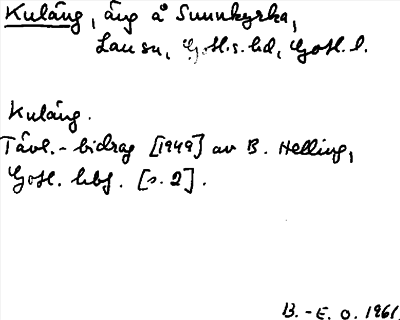 Kuläng, äng å Sunnkyrka,
Lau sn, Gotl. s. hd, Gotl. l.
Kuläng.
Tävl.-bidrag [1949] av B. Helling,
Gotl. hbf. [s. 2].
B.-E. O. 1961.